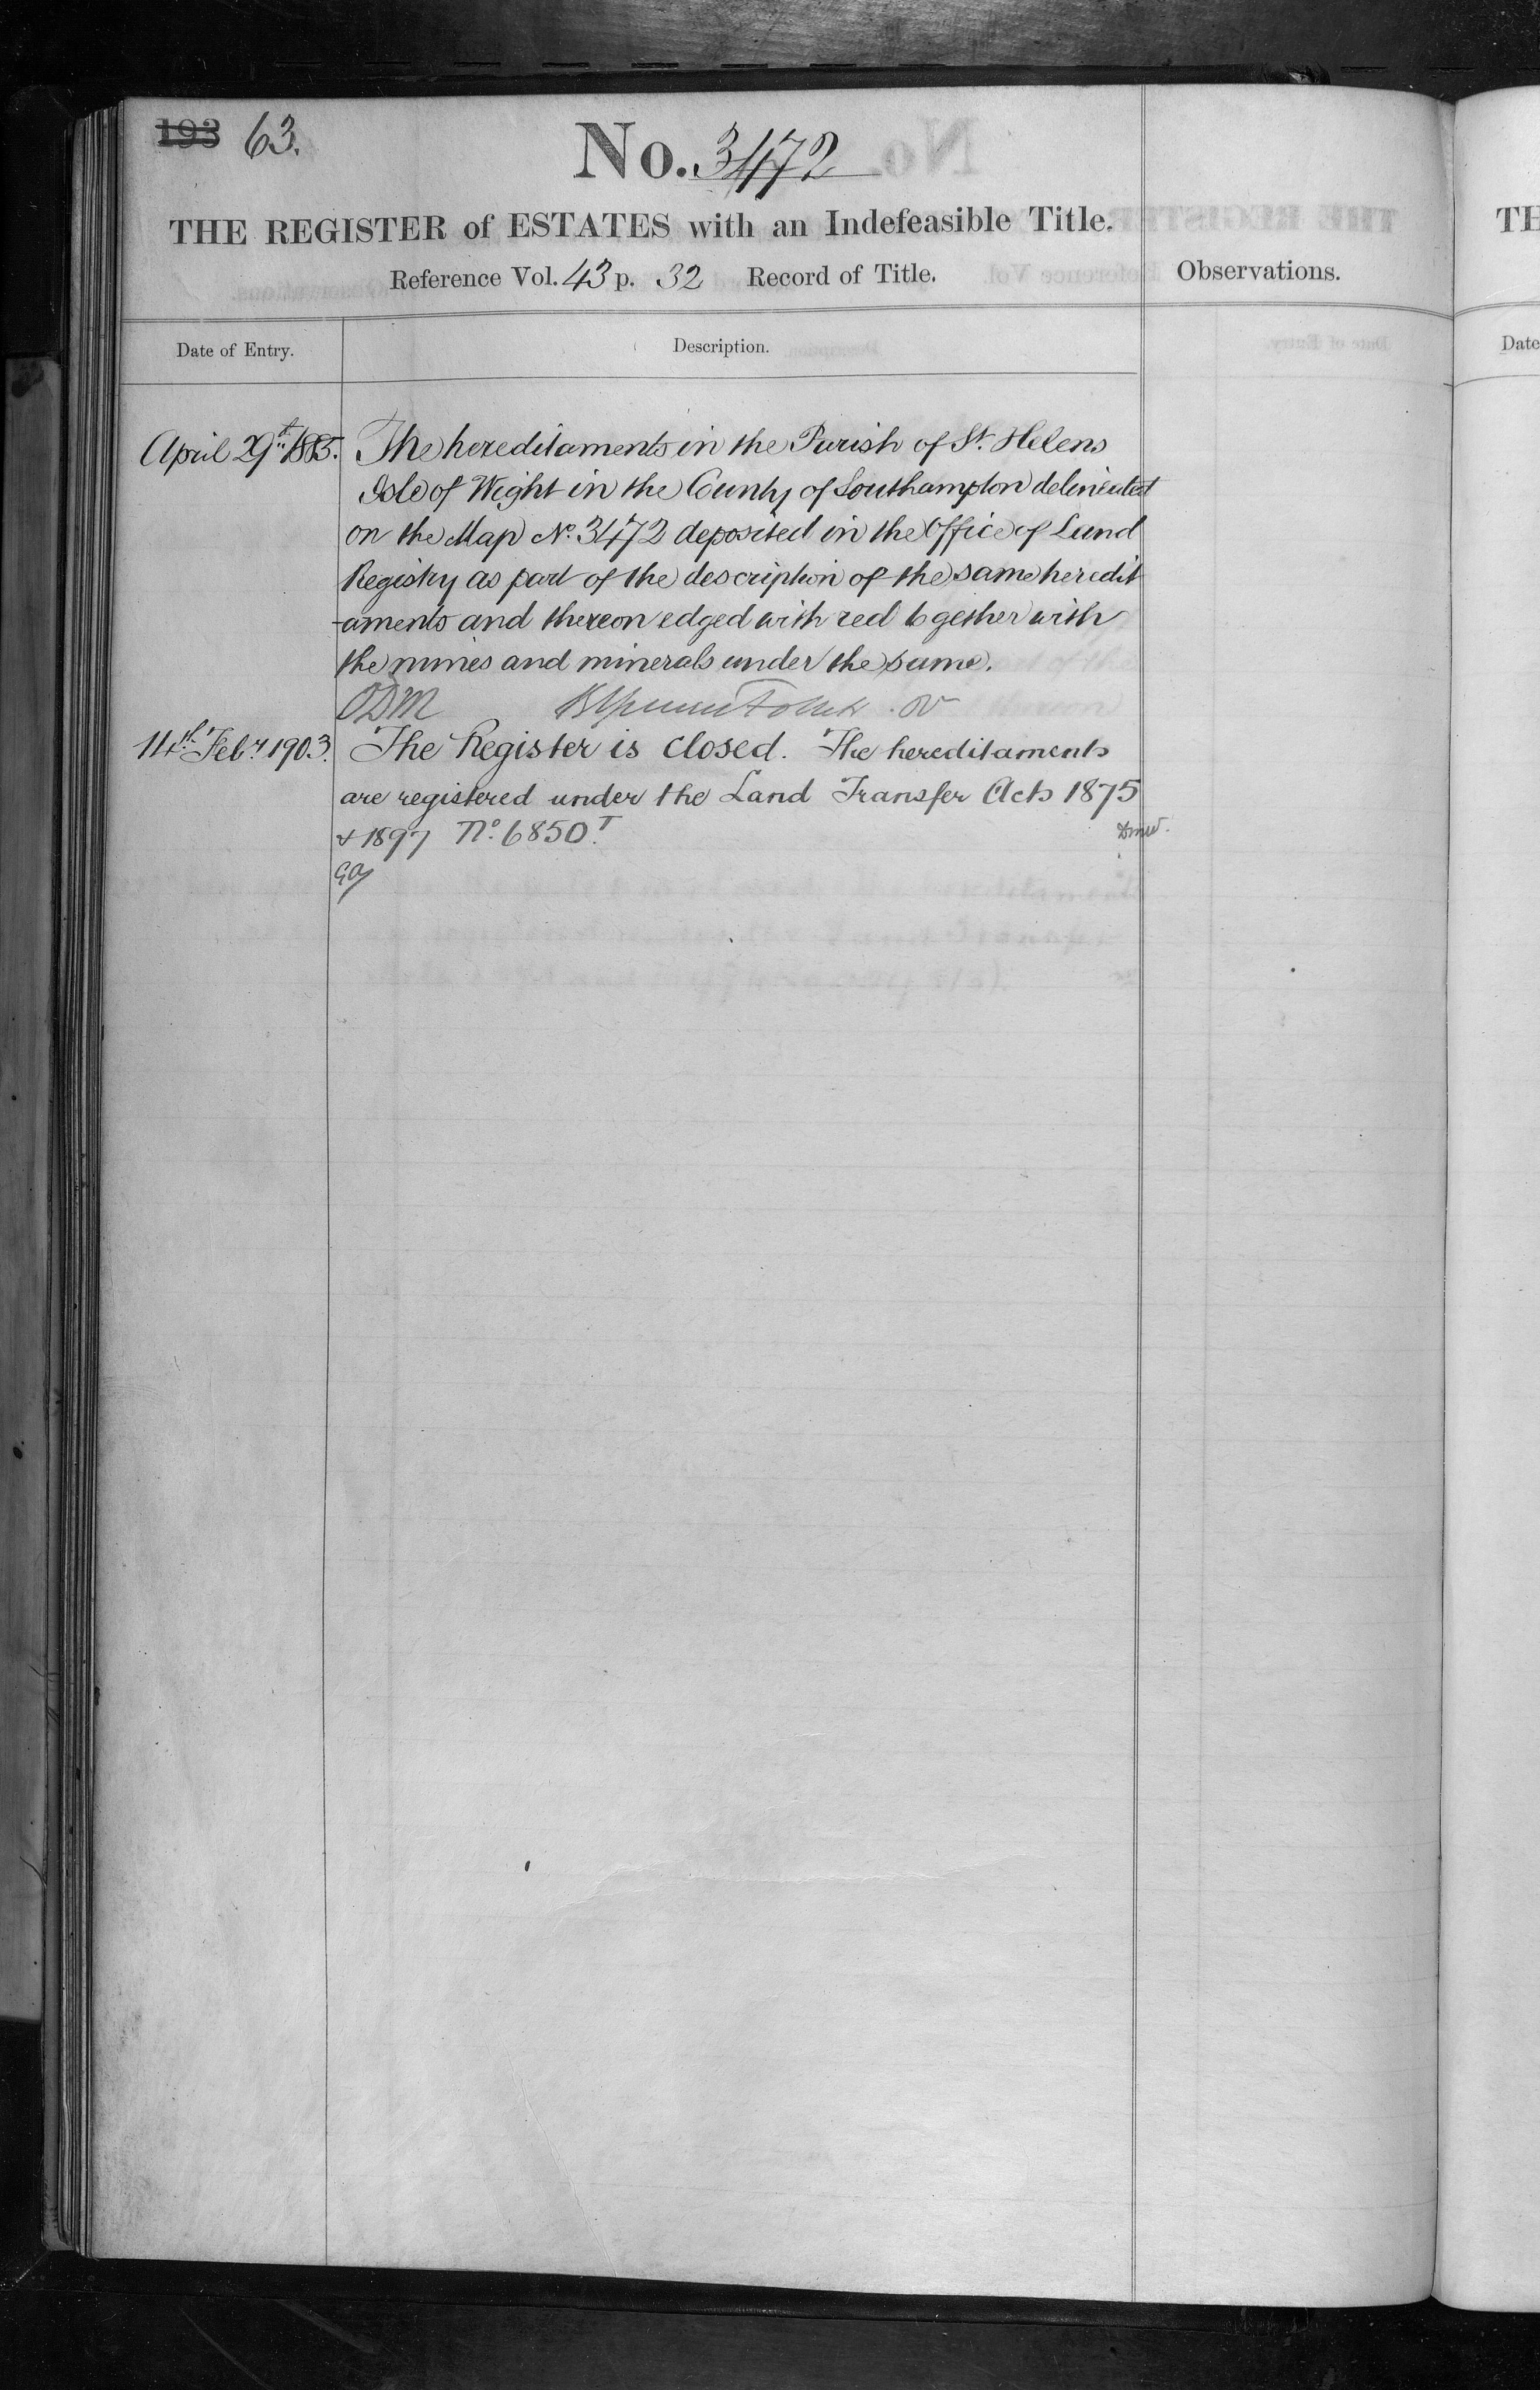 193 63.
No. 3472
THE REGISTER of ESTATES with an Indefeasible Title.
Reference Vol. 43 p. 32 Record of Title.
Observations.
TH
Date of Entry.
Description.
Date
April 29th 1885.
The hereditaments in the Parish of St. Helens
Isle of Wight in the County of Southampton delineated
on the Map No. 3472 deposited in the Office of Land
Registry as part of the description of the same heredit
-aments and thereon edged with red together with
the mines and minerals under the same.
ODM
11th Feby 1903.
The Register is closed. The hereditaments
are registered under the Land Transfer Acts 1875
& 1897 No. 6850T